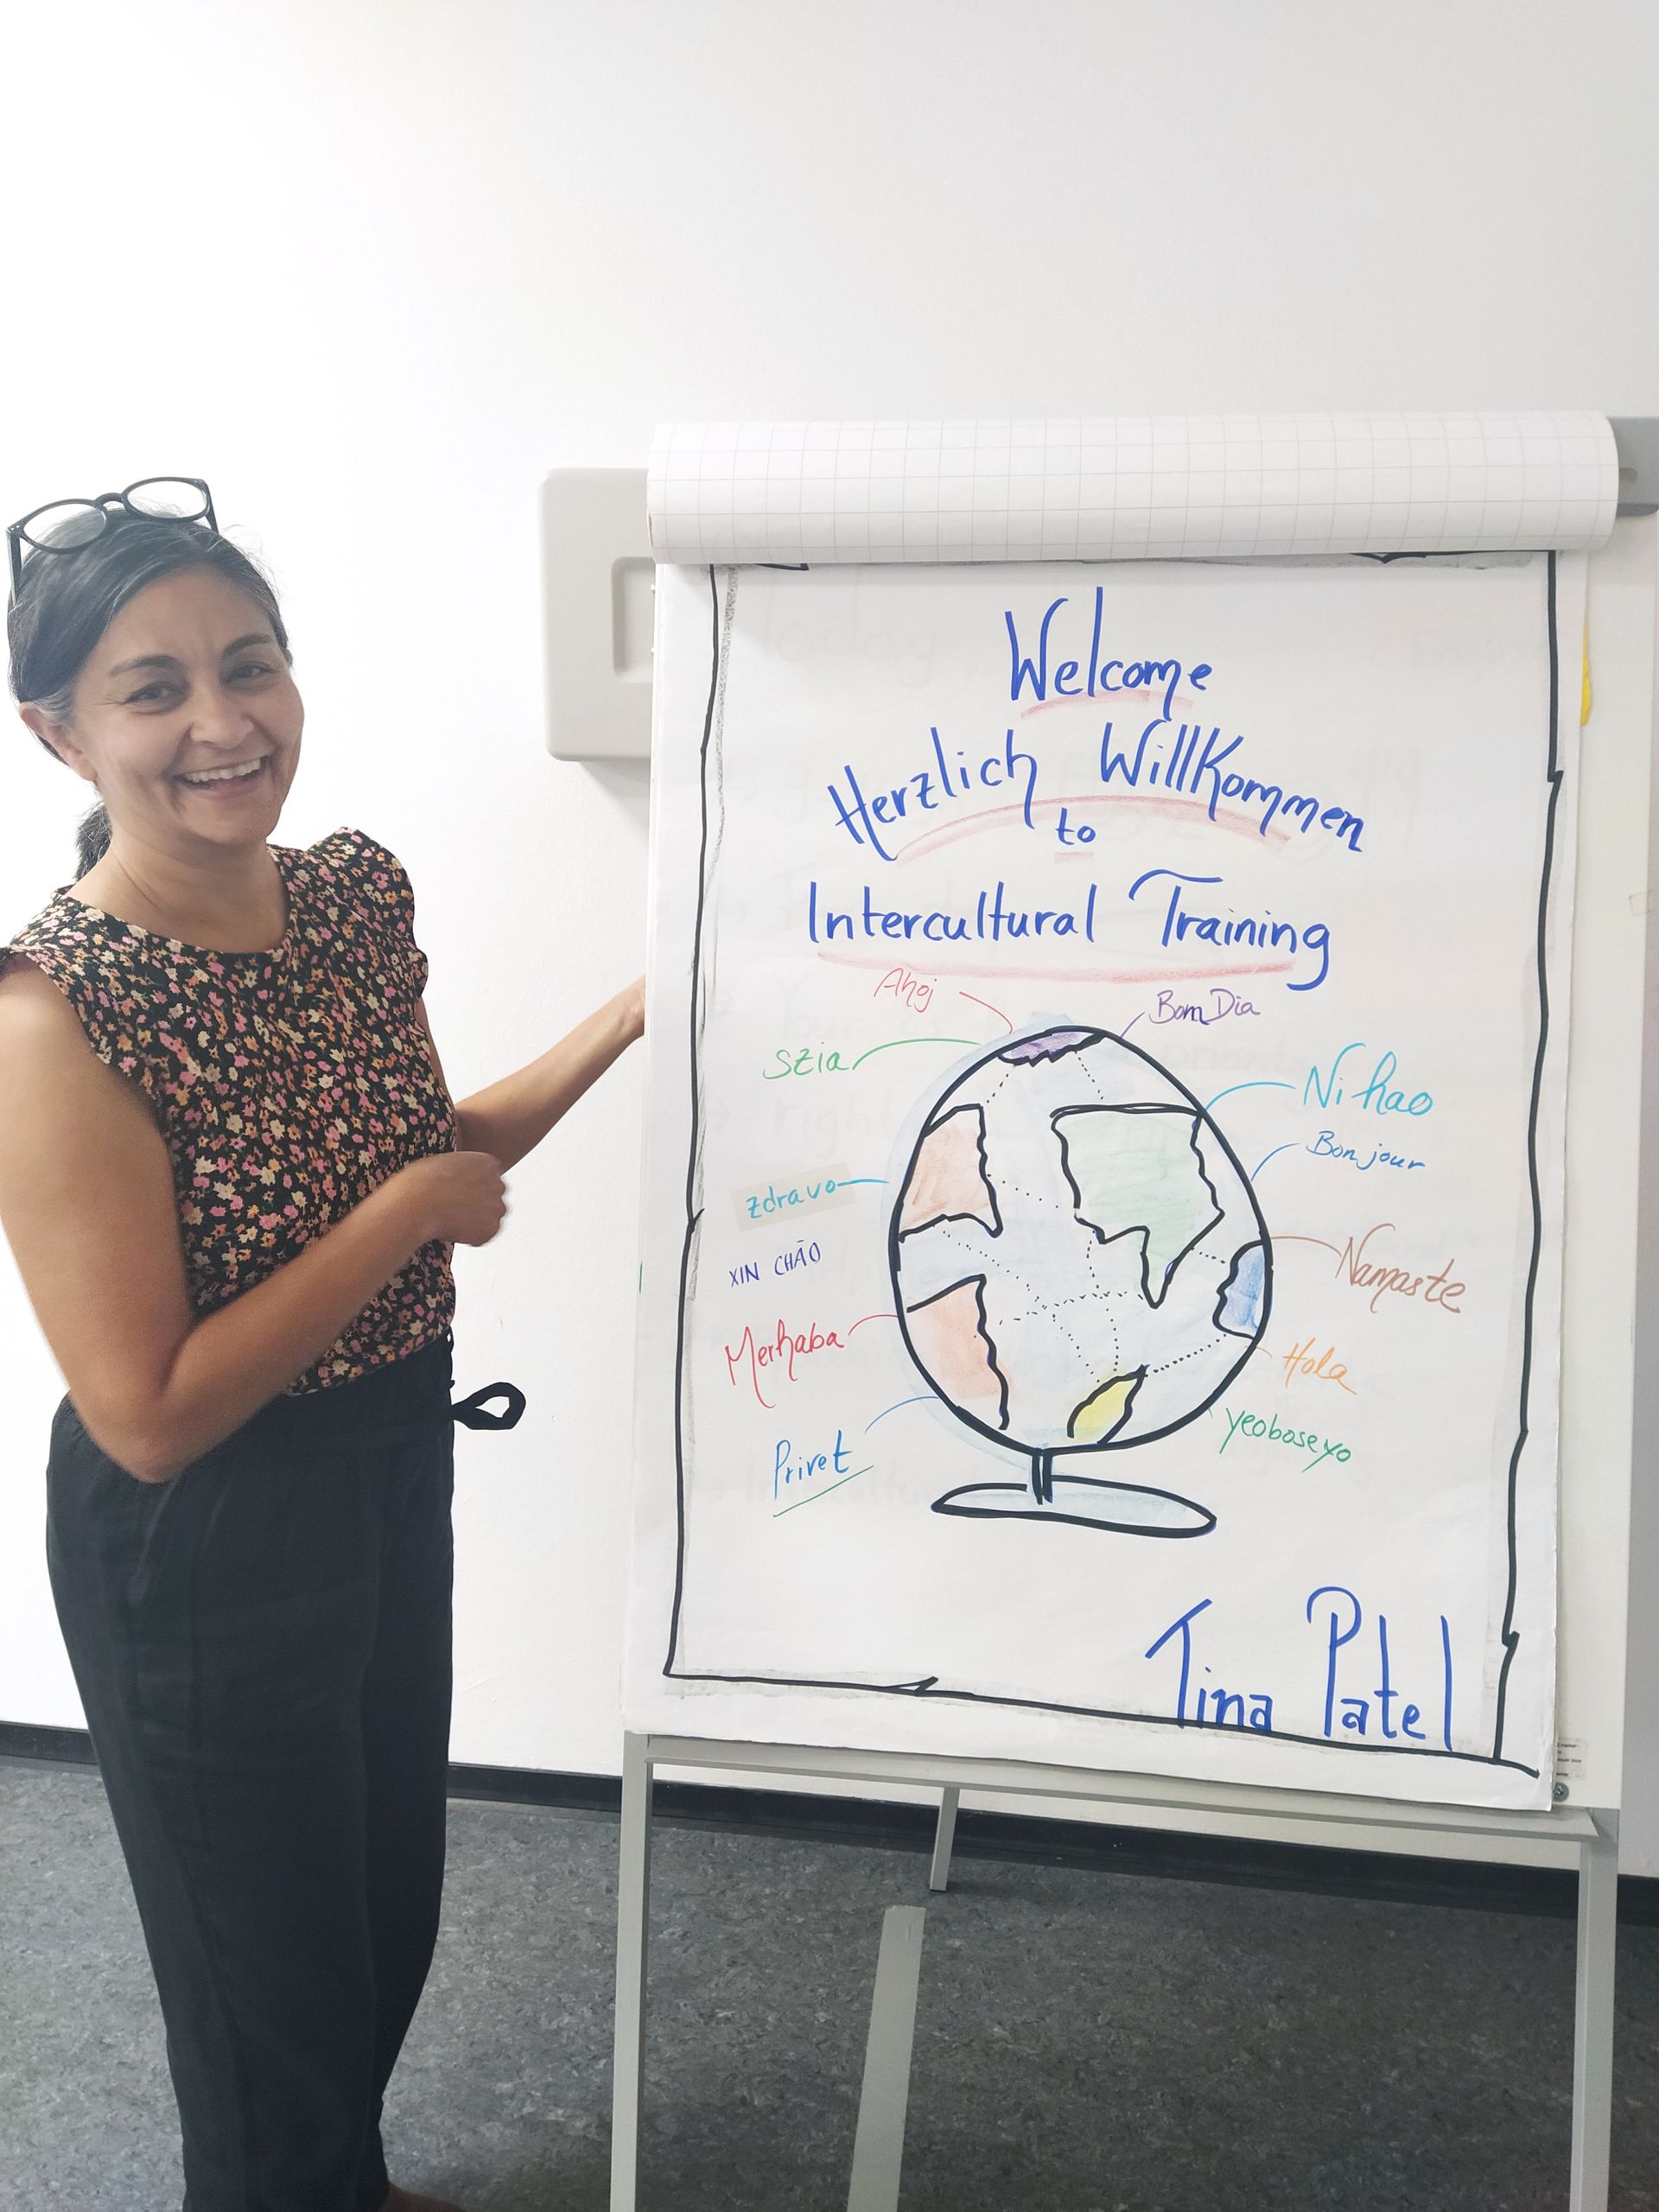 Welcome
Herzlich Willkommen
to
Intercultural Training
Ahoj
Bom Dia
Szia
Ni hao
Bonjour
zdravo
Namaste
XIN CHÃO
Merhaba
Hola
yeoboseyo
Privet
Tina Patel